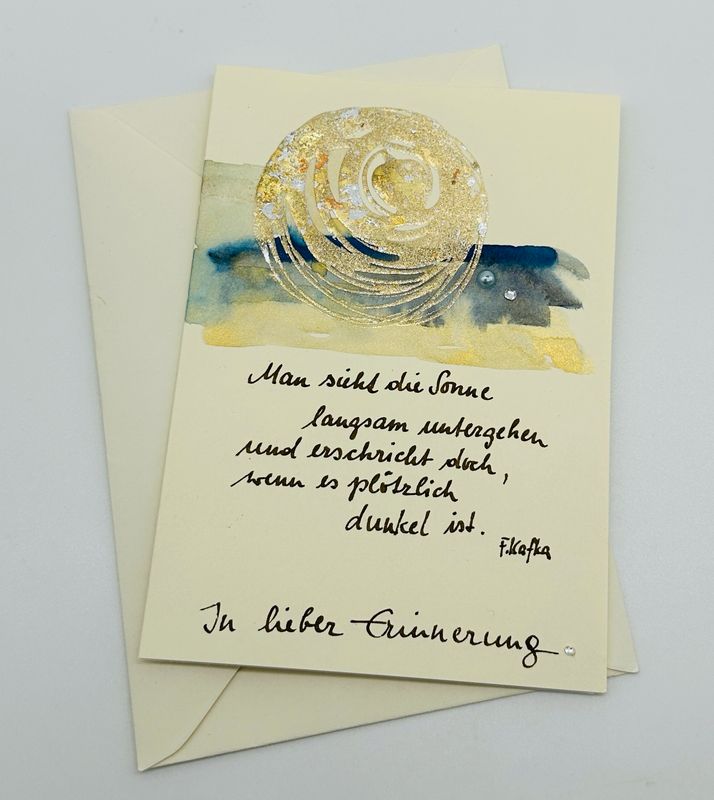 Man sieht die Sonne
langsam untergehen
und erschrickt doch,
wenn es plötzlich
dunkel ist.
F. Kafka
In lieber Erinnerung